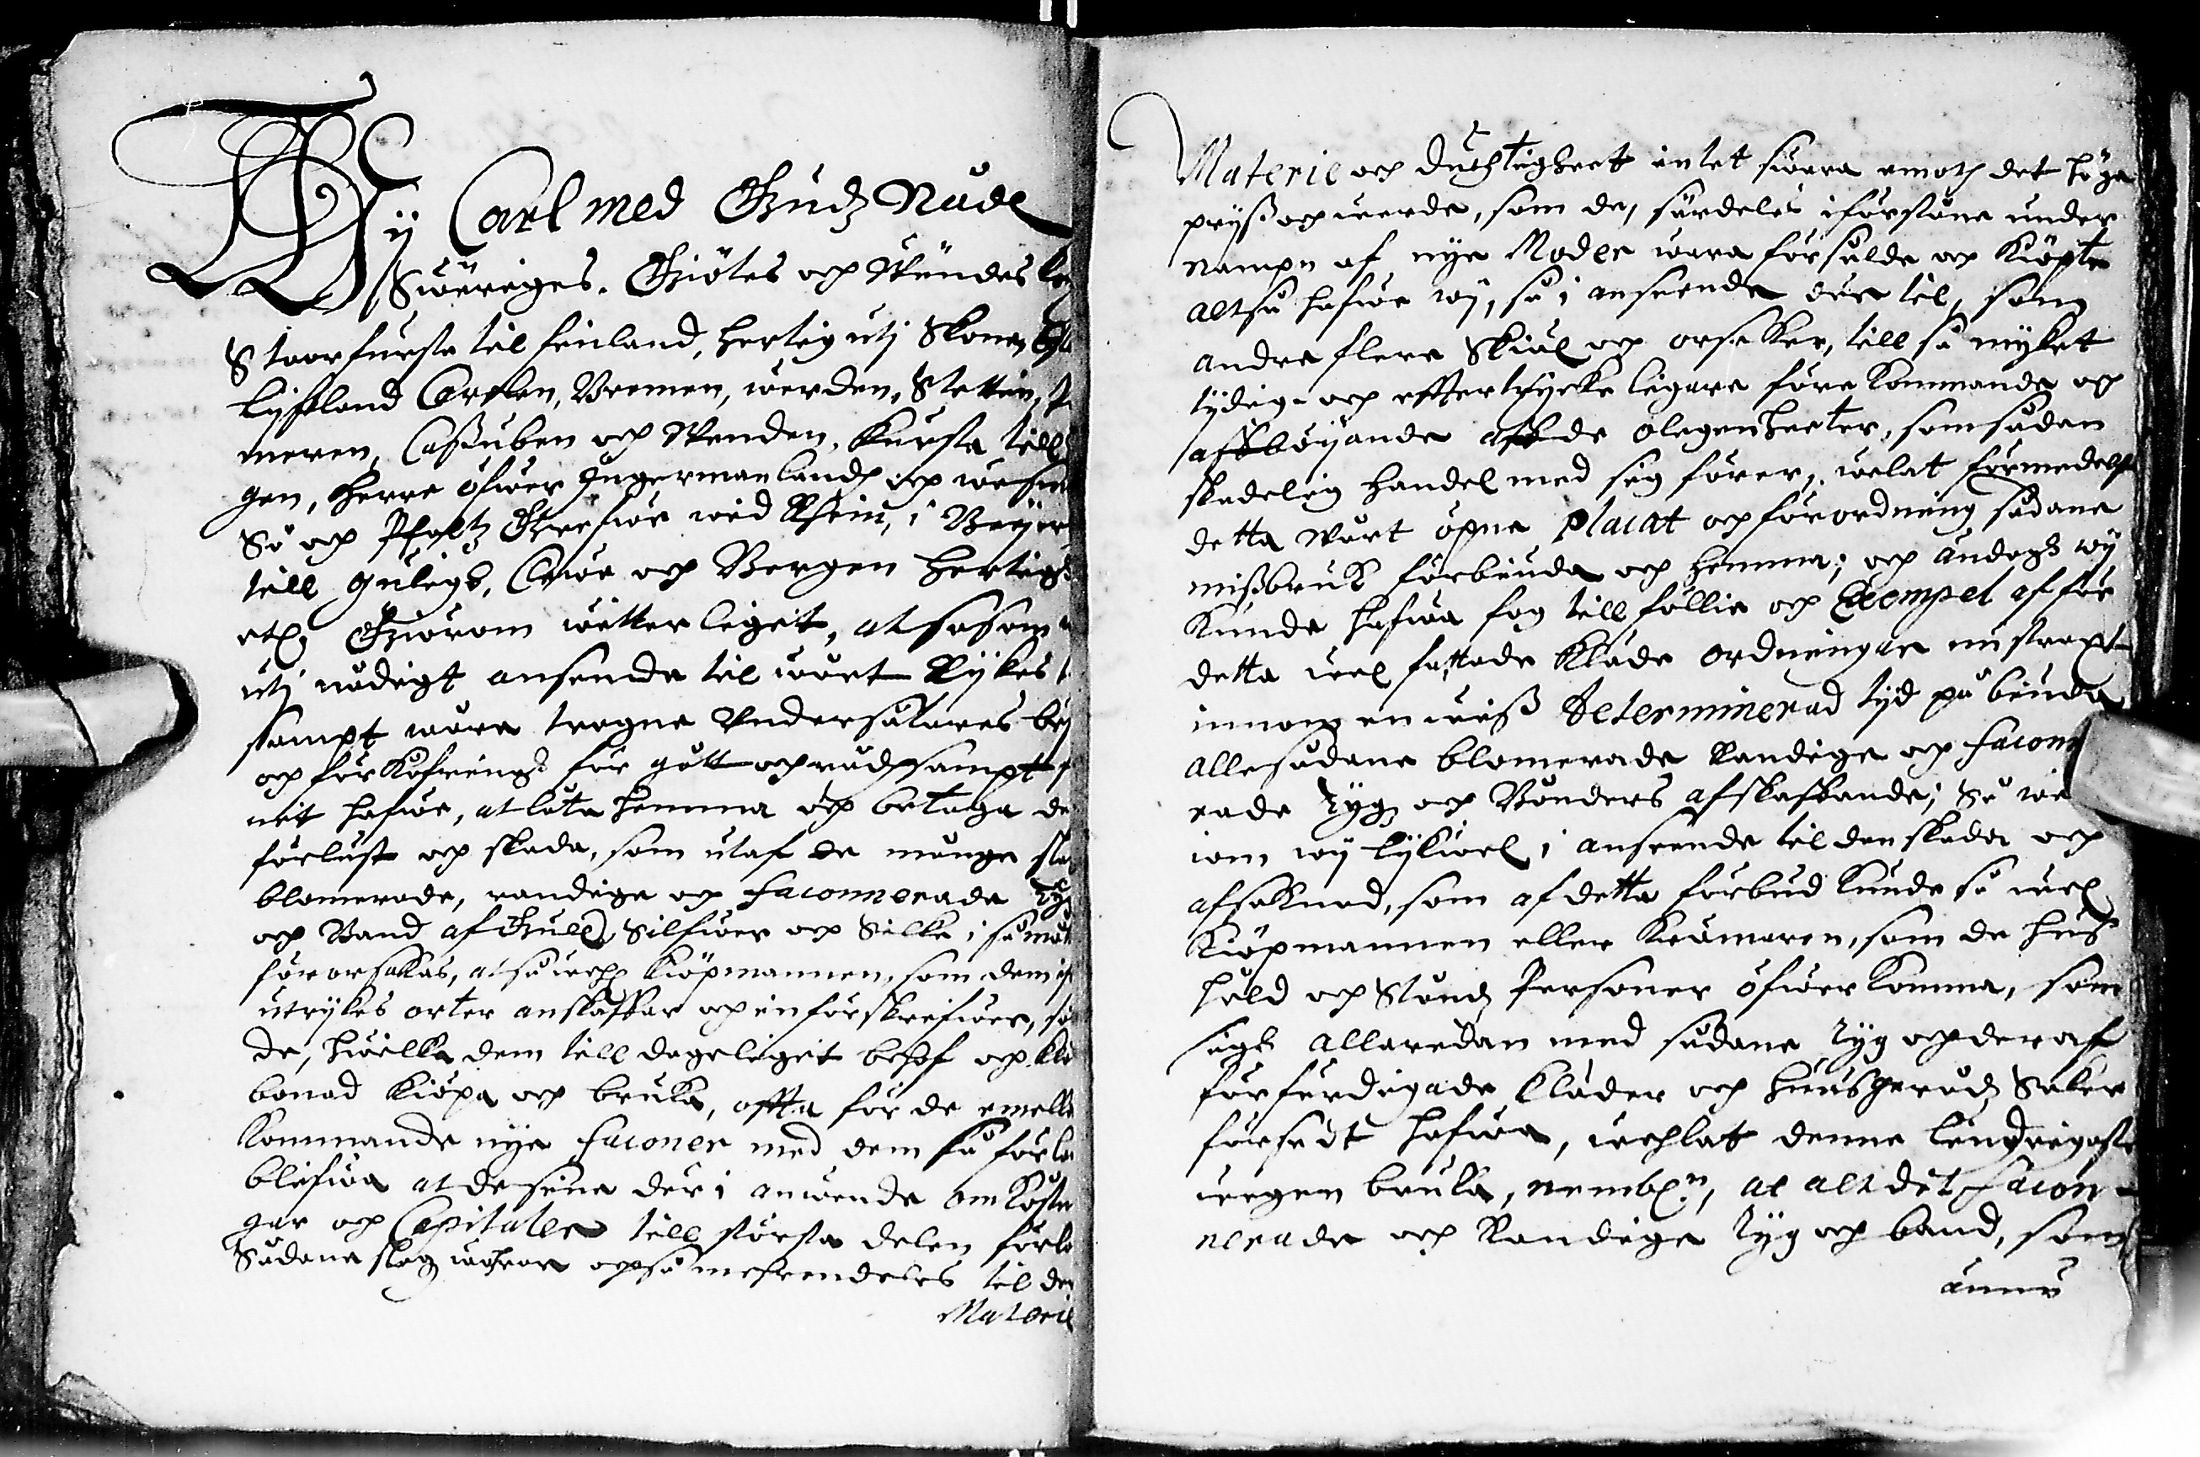 Wij Carl med Gudz Nåde
Swäriges. Giötes och Wändes
Stoorfurste til Finland, hertig uti Skone,
Lijfland Carelen, Bremen, Werden, Stettin,
meren, Cassuben och Wenden, Furste till
gen, herre öfwer Ingermanland och
Så och Pfaltz Grefwe wid Rhein, i Beijern
till Gulich, Clewe och Bergen hertig
etc. Giörom witterligit, at såsom
uti nådigt anseende til wårt Rijkes
sampt wåre trogne Undersåtares
och förkofring för gått och rådsampt
nit hafwe, at låta hemma och betaga
förlust och skada, som utaf de månge
blomerade, randige och faconnerade Tyg
och Band af Gull, Silfwer och Silke i
förorsakas, at så wehl Kiöpmannen, som dem
utrijkes orter anskaffar och införskrifwer,
de, hwilka dem till dageligit behof och
bonad kiöpa och bruka, offta för de emella
kommande nye faconer med dem så
blifwa at de sine der i anwende omkost
gar och Capitaler till största delen
Sådane slag wahror också mehrendeles til
Materie

Materie och duchtigheet intet swara emoth det höga
prijss och werde, som de, särdeles i förstone under
nampn af nye Moder wara försålde och kiöpte
altså hafwe wij, så i anseende der til, som
andre flere Skiäl och orsaker, till så mycket
tydig- och effter tryckeligare förekommande och
affböijande af de olegenheeter, som sådan
skadelig handel med sig förer, welat förmedelst
detta Wårt öpne Placat och förordning sådane
missbruk förbiuda och hemma; och ändoch wij
kunde hafwa fog till föllie och Exempel af för
detta wel fattade Kläde ordningar nu straxt
innom en wiss determinerad tijd påbiuda
alle sådane blomerade Randige och facon
rade Tyg och Bånders afskaffande; Så
iom wij lijkwel i anseende til den skada och
afsaknad, som af detta förbud kunde så wel
Kiöpmannen eller Krämaren, som de hus
håld och Stånds Personer öfwerkomma, som
sigh allaredan med sådane tyg och deraf
förfärdigade kläder och huusgeråds Saker
försedt hafwa, wehlat denne lindrigaste
wegen bruka, nembl:n, at alt det facon-
nerade och Randige Tyg och band, som
ännu